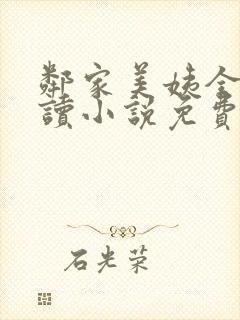 鄰家美姨全
讀小説免費
石光荣